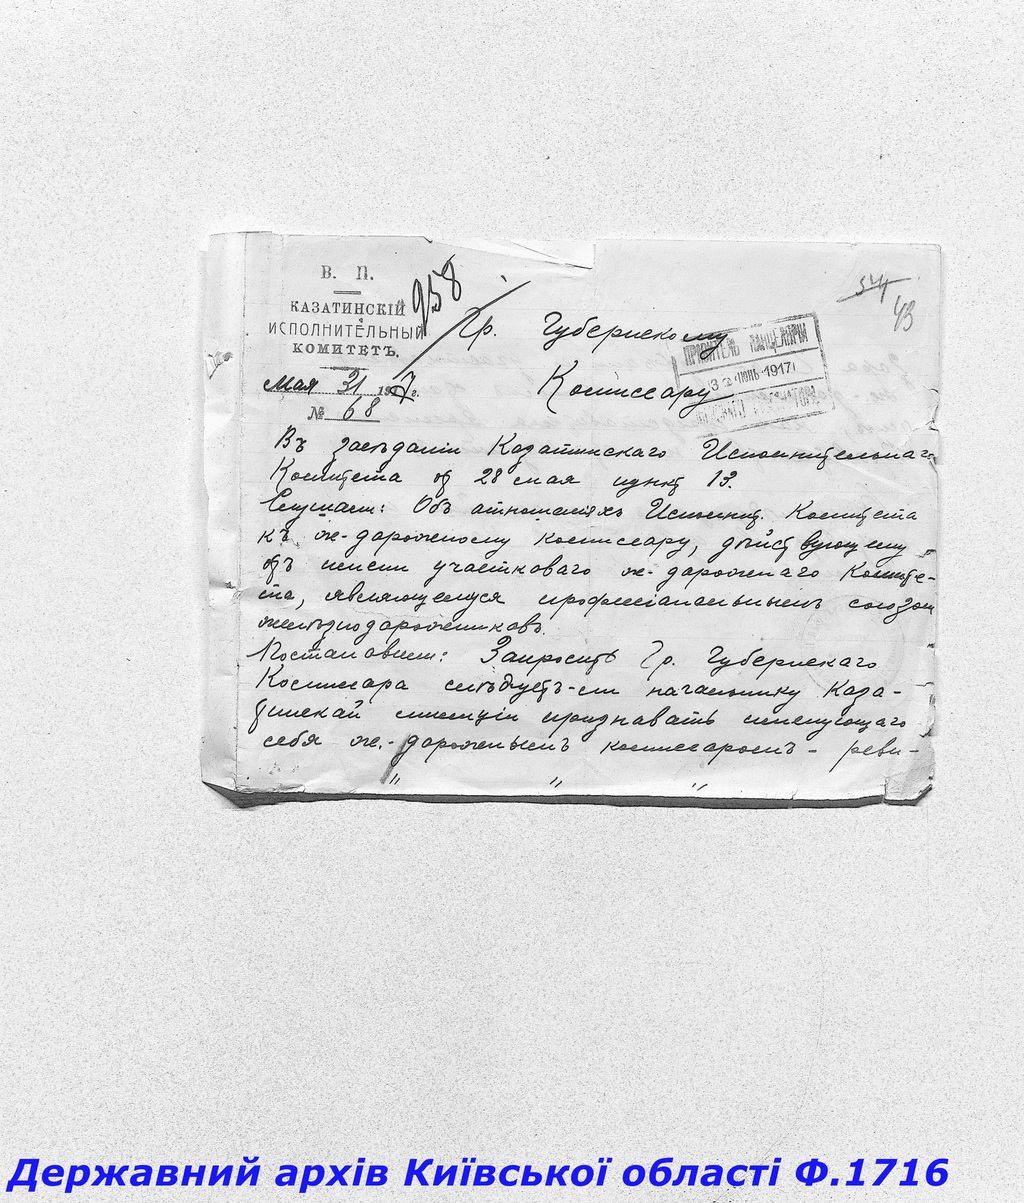 В. П.
КАЗАТИНСКІЙ
ИСПОЛНИТЕЛЬНЫЙ
КОМИТЕТЪ.
Мая 31 1917 г.
№ 68
958
544
43
Гр. Губернскому
Комиссару
ПРАВИТЕЛЬ КАНЦЕЛЯРІИ
3 ІЮНЬ 1917
Въ засѣданіи Казатинскаго Исполнительнаго
Комитета от 28 мая пункт 13.
Слушали: Объ отношеніяхъ Исполнит. Комитета
къ ж-дорожному комиссару, дѣйствующему
отъ имени участковаго ж-дорожнаго Комите-
та, являющемуся професіональнымъ союзом
желѣзнодорожниковъ.
Постановили: Запросить Гр. Губернскаго
Комиссара слѣдуетъ-ли начальнику Каза-
тинской милиціи признавать именующаго
себя ж.-дорожнымъ комиссаромъ - реви-
" " "
Державний архів Київської області Ф.1716